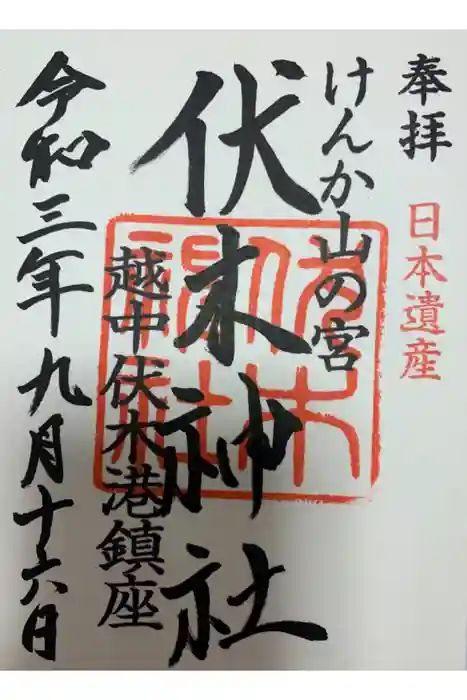 奉拝
日本遺産
けんか山の宮
伏木神社
伏木神社
越中伏木港鎮座
令和三年九月十六日